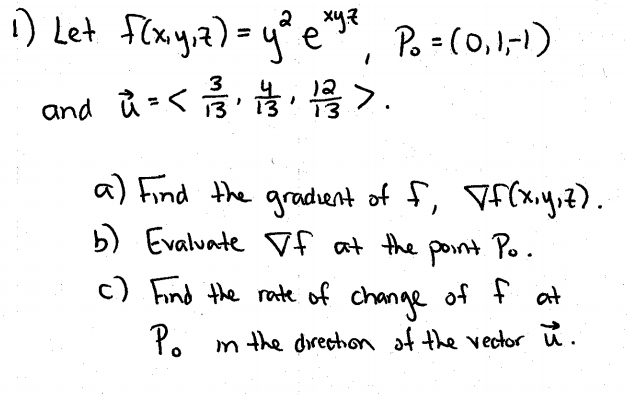 1) Let f(x,y,z) = y² e^{xyz}, P₀ = (0,1,-1)
and u⃗ = < 3/13, 4/13, 12/13 >.
a) Find the gradient of f, ∇f(x,y,z).
b) Evaluate ∇f at the point P₀.
c) Find the rate of change of f at
P₀ in the direction of the vector u⃗.